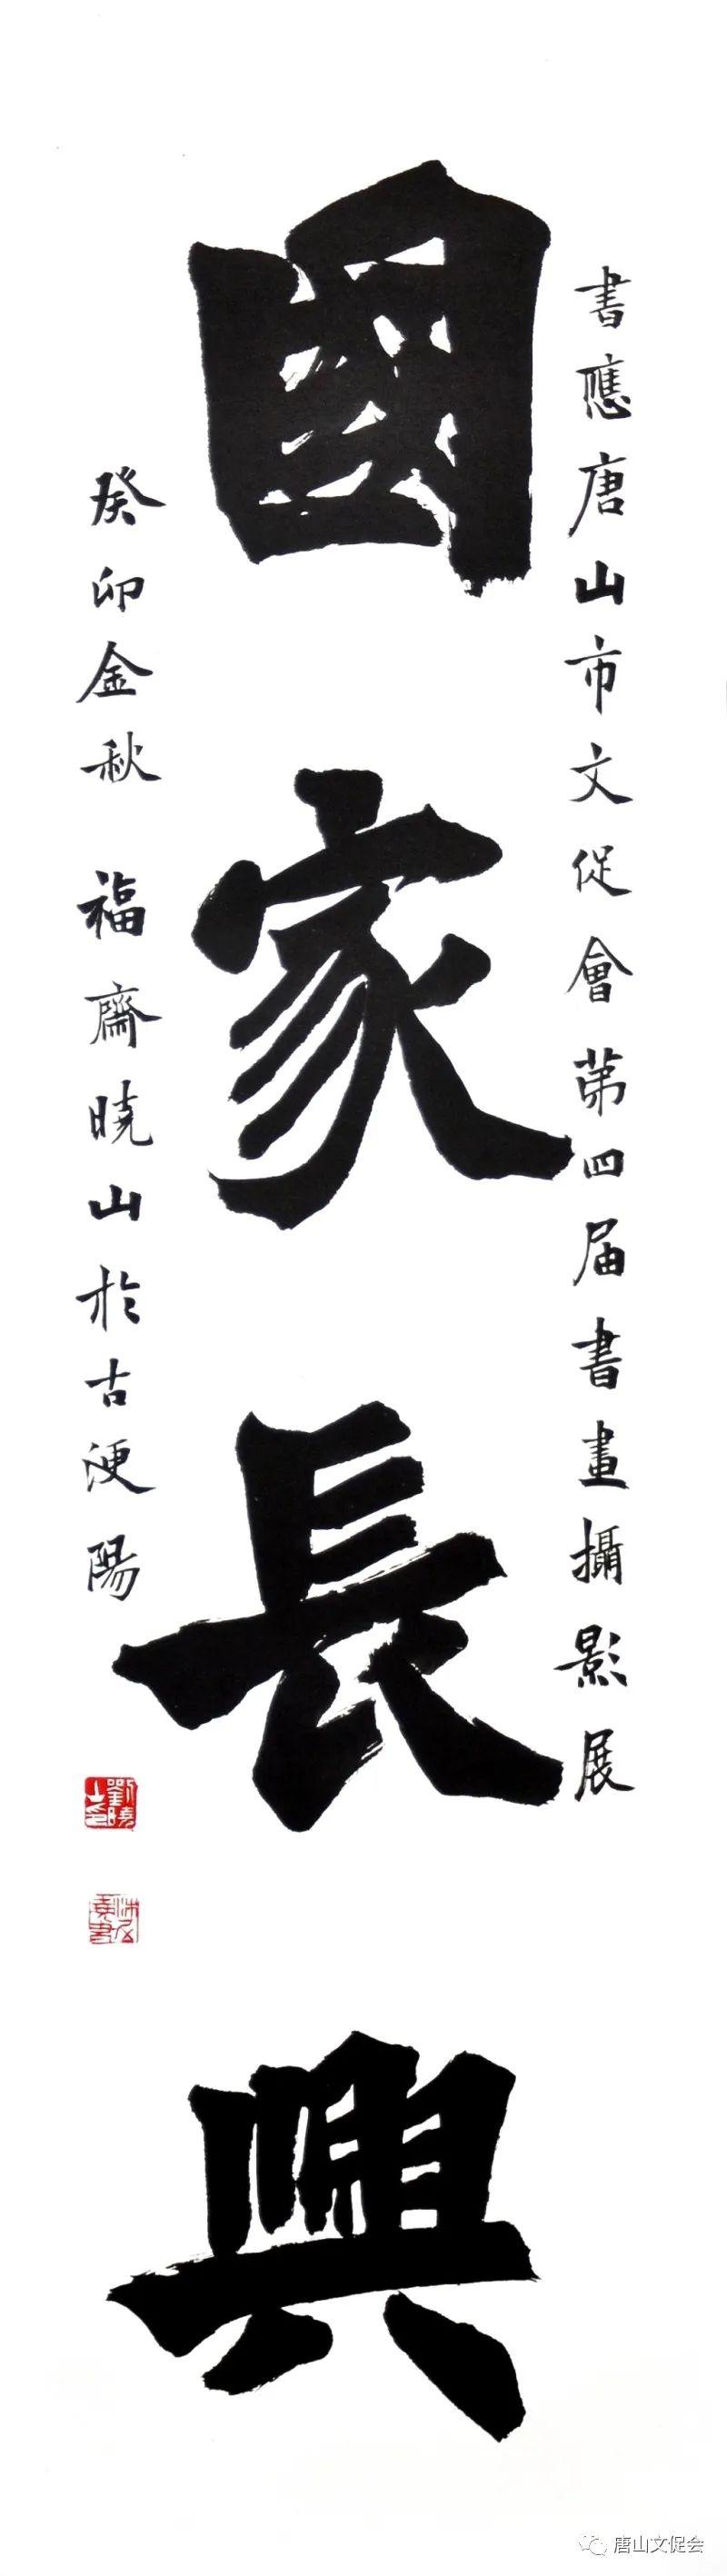 書應唐山市文促會第四届書畫攝影展
國家長興
癸卯金秋 福齋曉山於古浭陽
劉曉山印
唐山文促会